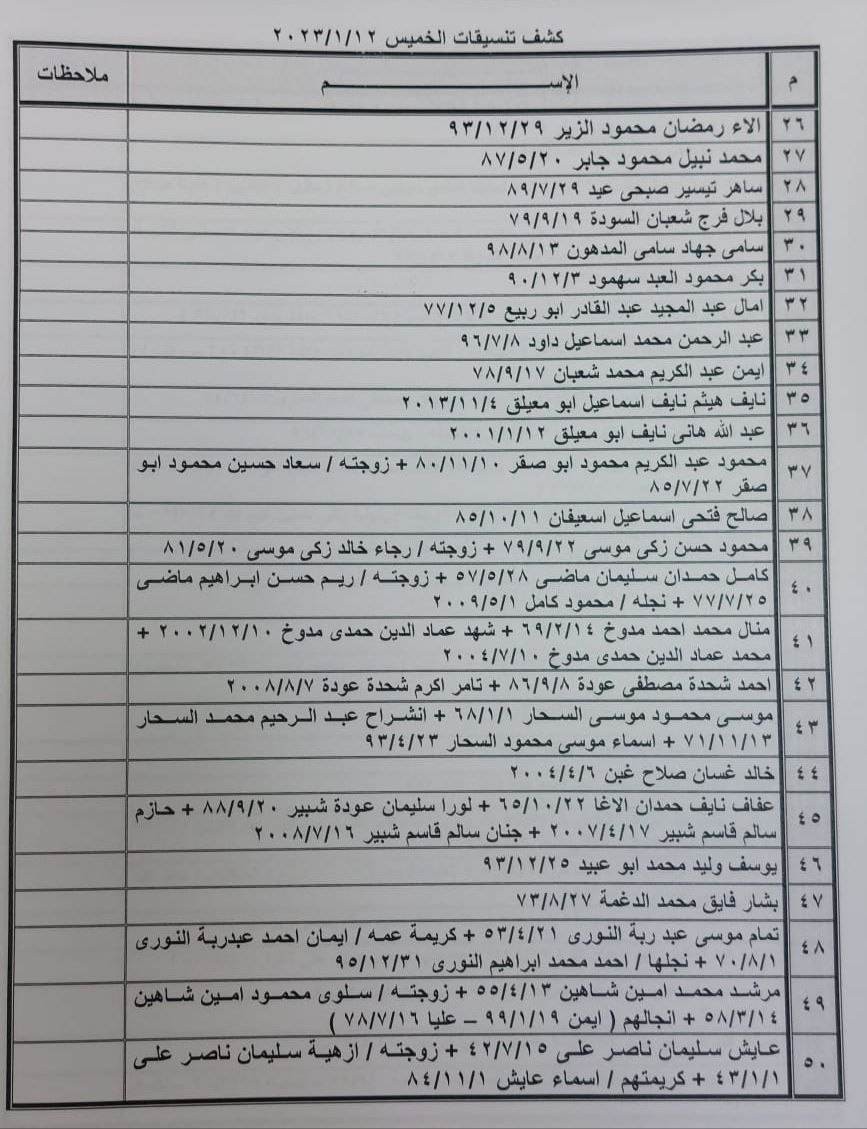 كشف تنسيقات الخميس ٢٠٢٣/١/١٢
م الإســـــم ملاحظات
٢٦ الاء رمضان محمود الزير ٩٣/١٢/٢٩
٢٧ محمد نبيل محمود جابر ٨٧/٥/٢٠
٢٨ ساهر تيسير صبحى عيد ٨٩/٧/٢٩
٢٩ بلال فرج شعبان السودة ٧٩/٩/١٩
٣٠ سامى جهاد سامى المدهون ٩٨/٨/١٣
٣١ بكر محمود العبد سهمود ٩٠/١٢/٣
٣٢ امال عبد المجيد عبد القادر ابو ربيع ٧٧/١٢/٥
٣٣ عبد الرحمن محمد اسماعيل داود ٩٦/٧/٨
٣٤ ايمن عبد الكريم محمد شعبان ٧٨/٩/١٧
٣٥ نايف هيثم نايف اسماعيل ابو معيلق ٢٠١٣/١١/٤
٣٦ عبد الله هانى نايف ابو معيلق ٢٠٠١/١/١٢
٣٧ محمود عبد الكريم محمود ابو صقر ٨٠/١١/١٠ + زوجته / سعاد حسين محمود ابو
صقر ٨٥/٧/٢٢
٣٨ صالح فتحى اسماعيل اسعيفان ٨٥/١٠/١١
٣٩ محمود حسن زكى موسى ٧٩/٩/٢٢ + زوجته / رجاء خالد زكى موسى ٨١/٥/٢٠
٤٠ كامل حمدان سليمان ماضى ٥٧/٥/٢٨ + زوجته / ريم حسن ابراهيم ماضى
٧٧/٧/٢٥ + نجله / محمود كامل ٢٠٠٩/٥/١
٤١ منال محمد احمد مدوخ ٦٩/٢/١٤ + شهد عماد الدين حمدى مدوخ ٢٠٠٢/١٢/١٠ +
محمد عماد الدين حمدى مدوخ ٢٠٠٤/٧/١٠
٤٢ احمد شحدة مصطفى عودة ٨٦/٩/٨ + تامر اكرم شحدة عودة ٢٠٠٨/٨/٧
٤٣ موسى محمود موسى السحار ٦٨/١/١ + انشراح عبد الرحيم محمد السحار
٧١/١١/١٣ + اسماء موسى محمود السحار ٩٣/٤/٢٣
٤٤ خالد غسان صلاح غبن ٢٠٠٤/٤/٦
٤٥ عفاف نايف حمدان الاغا ٦٥/١٠/٢٢ + لورا سليمان عودة شبير ٨٨/٩/٢٠ + حازم
سالم قاسم شبير ٢٠٠٧/٤/١٧ + جنان سالم قاسم شبير ٢٠٠٨/٧/١٦
٤٦ يوسف وليد محمد ابو عبيد ٩٣/١٢/٢٥
٤٧ بشار فايق محمد الدغمة ٧٣/٨/٢٧
٤٨ تمام موسى عبد ربة النورى ٥٣/٤/٢١ + كريمة عمه / ايمان احمد عبدربة النورى
٧٠/٨/١ + نجلها / احمد محمد ابراهيم النورى ٩٥/١٢/٣١
٤٩ مرشد محمد امين شاهين ٥٥/٤/١٣ + زوجته / سلوى محمود امين شاهين
٥٨/٣/١٤ + انجالهم ( ايمن ٩٩/١/١٩ – عليا ٧٨/٧/١٦ )
٥٠ عايش سليمان ناصر على ٤٢/٧/١٥ + زوجته / ازهية سليمان ناصر على
٤٣/١/١ + كريمتهم / اسماء عايش ٨٤/١١/١